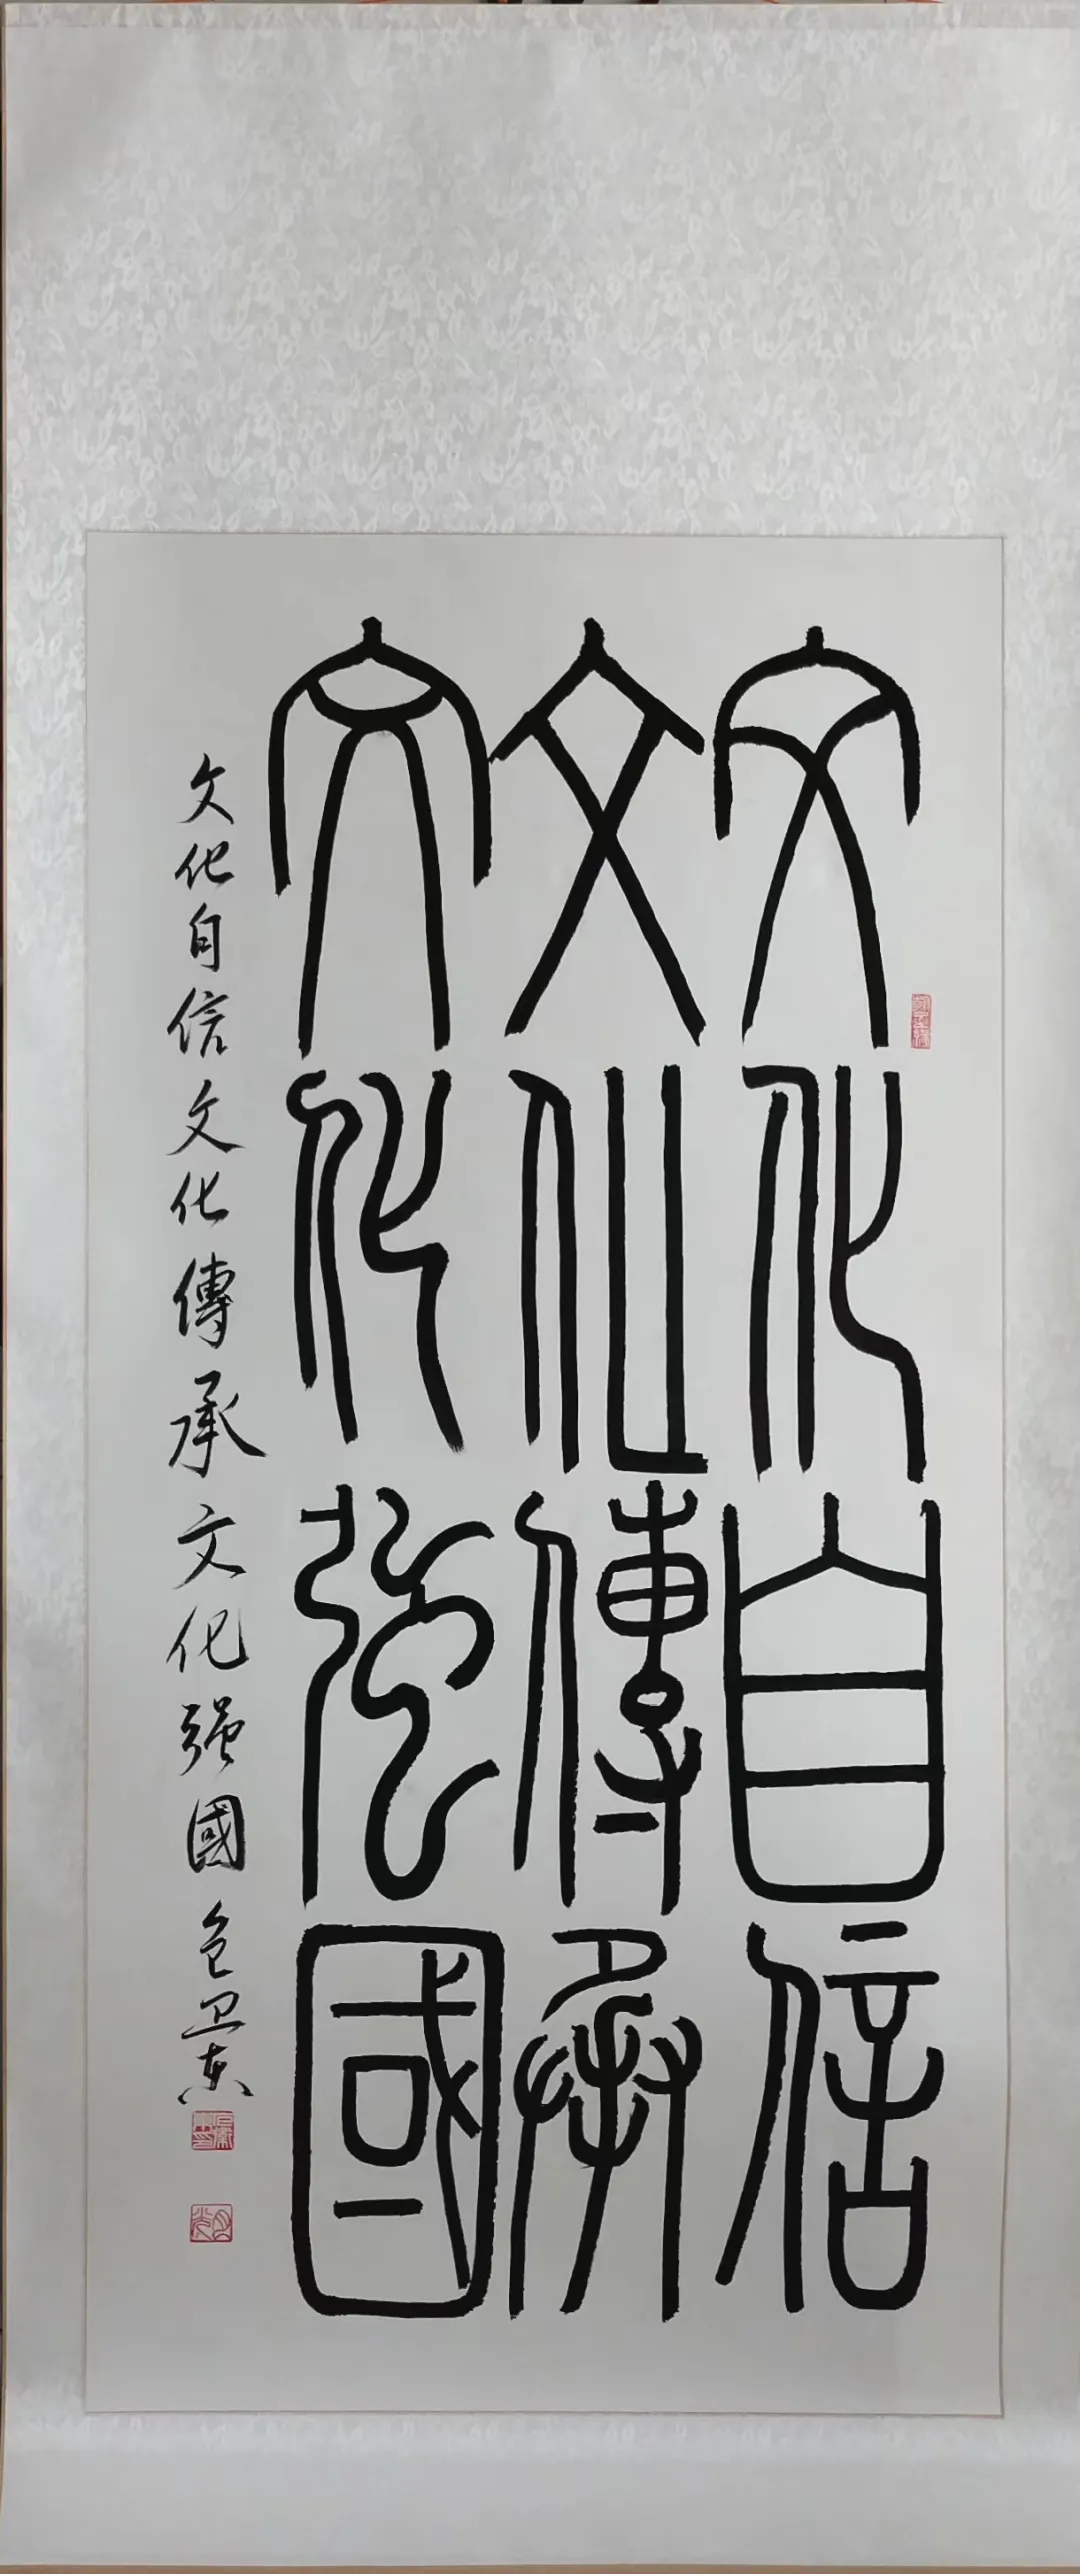 文化自信
文化傳承
文化强國
文化自信文化傳承文化强國 包卫东